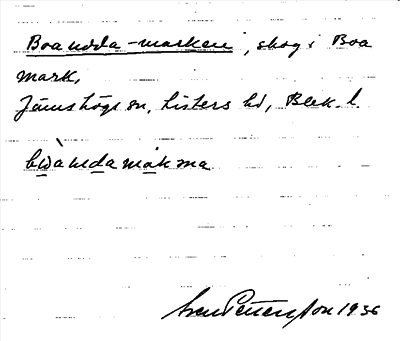 Boaudda-marken, skog i Boa
mark,
Jämshögs sn, Listers hd, Blek. l.
Sven Petersson 1936